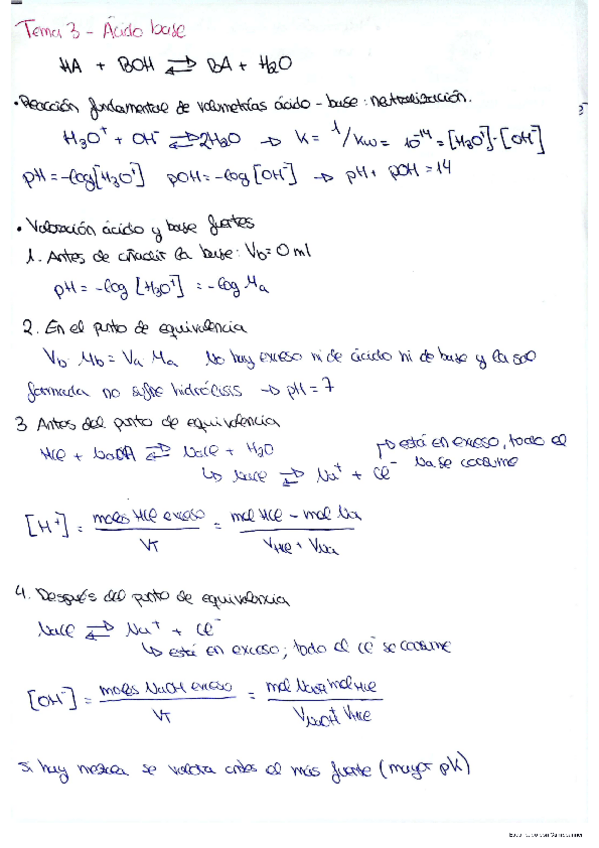 Tema 3 - Ácido base
HA + BOH ⇌ BA + H2O
• Reacción fundamental de volumetrías ácido - base: neutralización.
H3O+ + OH- ⇌ 2H2O → K = 1/Kw = 10^-14 = [H3O+]·[OH-]
pH = -log[H3O+] pOH = -log[OH-] → pH + pOH = 14
• Valoración ácido y base fuertes
1. Antes de añadir la base: Vb = 0 ml
pH = -log [H3O+] = -log Ma
2. En el punto de equivalencia
Vb Mb = Va Ma No hay exceso ni de ácido ni de base y la sal
formada no sufre hidrólisis → pH = 7
3 Antes del punto de equivalencia
HCl + NaOH ⇌ NaCl + H2O
↳ NaCl ⇌ Na+ + Cl-
↱ está en exceso, todo el
Na se consume
[H+] = moles HCl exceso / VT = mol HCl - mol Na / VHCl + VNa
4. Después del punto de equivalencia
NaCl ⇌ Na+ + Cl-
↳ está en exceso; todo el Cl- se consume
[OH-] = moles NaOH exceso / VT = mol NaOH mol HCl / VNaOH + VHCl
Si hay mezcla se valora antes el más fuerte (mayor pK)